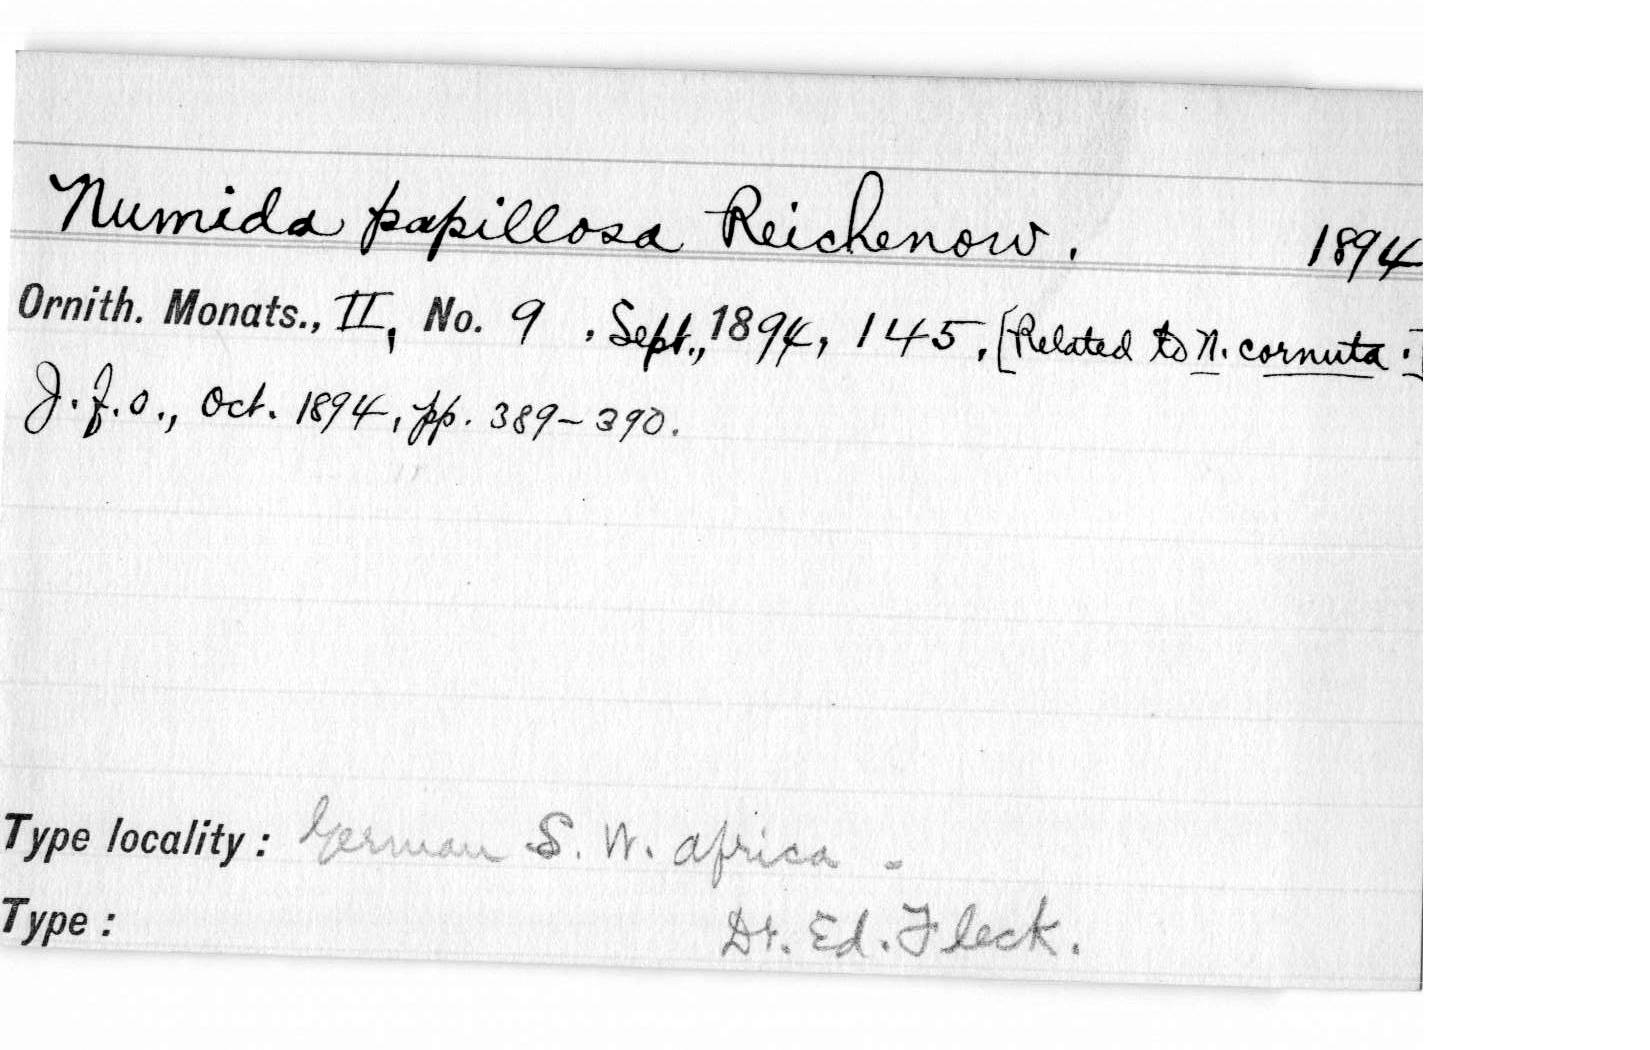 Numida papillosa Reichenow. 1894
Ornith. Monats., II, No. 9 . Sept., 1894, 145. [Related to N. cornuta.]
J.f.O., Oct. 1894, pp. 389-390.
Type locality: German S. W. Africa.
Type: Dr. Ed. Fleck.